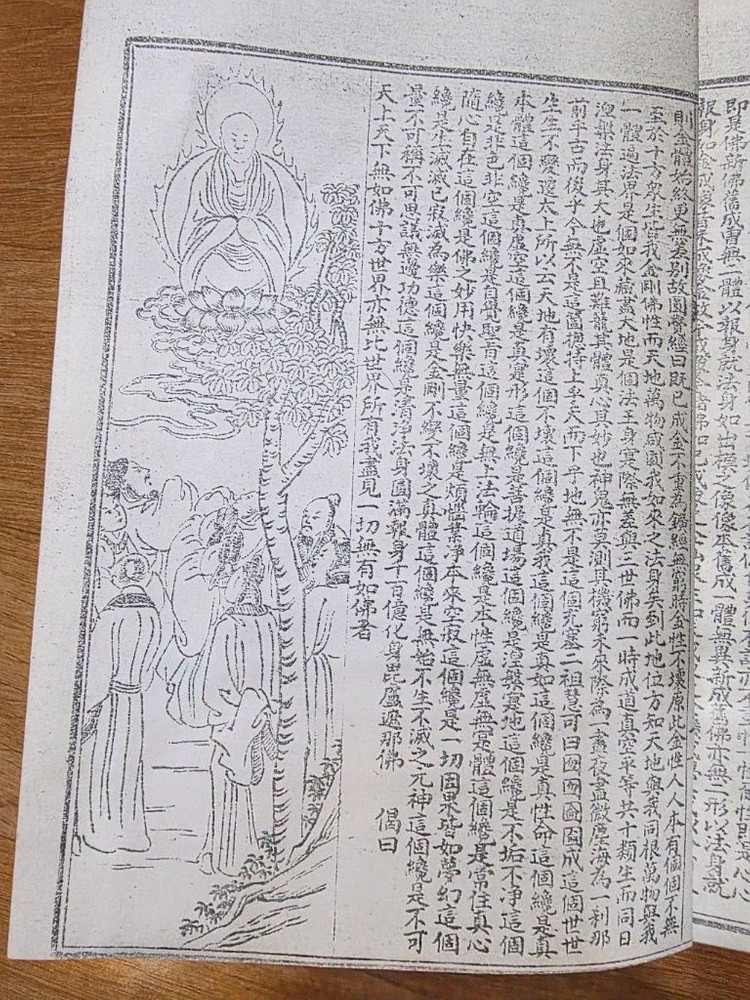 即是佛新佛舊成曾無一體以報身就法身如出模之像像本舊成一體無異新成舊佛亦無二形以法身就
報身如金成像
則金體始終更無差別故圓覺經曰既已成金不重為鑛經無窮時金性不壞原此金性人人本有個個不無
至於十方眾生皆我金剛佛性而天地萬物咸圓我如來之法身矣到此地位方知天地與我同根萬物與我
一體遍法界是個如來藏盡大地是個法王身實際無差與三世佛而一時成道真空平等共十類生而同日
涅槃法身其大也虛空且難籠其體真心其妙也神鬼亦莫測其機窮未來際為一晝夜盡微塵海為一剎那
前乎古而後乎今無不是這箇橫撐上乎天而下乎地無不是這個充塞二祖慧可曰囫囫圇圇成這個世世
生生不變遷太上所以云天地有壞這個不壞這個纔是真我這個纔是真如這個纔是真性命這個纔是真
本體這個纔是真虛空這個纔是真實形這個纔是菩提道場這個纔是涅槃實地這個纔是不垢不淨這個
纔是非色非空這個纔是自覺聖智這個纔是無上法輪這個纔是本性虛無虛無實體這個纔是常住真心
隨心自在這個纔是佛之妙用快樂無量這個纔是煩惱業淨本來空寂這個纔是一切因果皆如夢幻這個
纔是生滅滅已寂滅為樂這個纔是金剛不變不壞之真體這個纔是無始不生不滅之元神這個纔是不可
量不可稱不可思議無邊功德這個纔是清淨法身圓滿報身千百億化身毘盧遮那佛 偈曰
天上天下無如佛十方世界亦無比世界所有我盡見一切無有如佛者